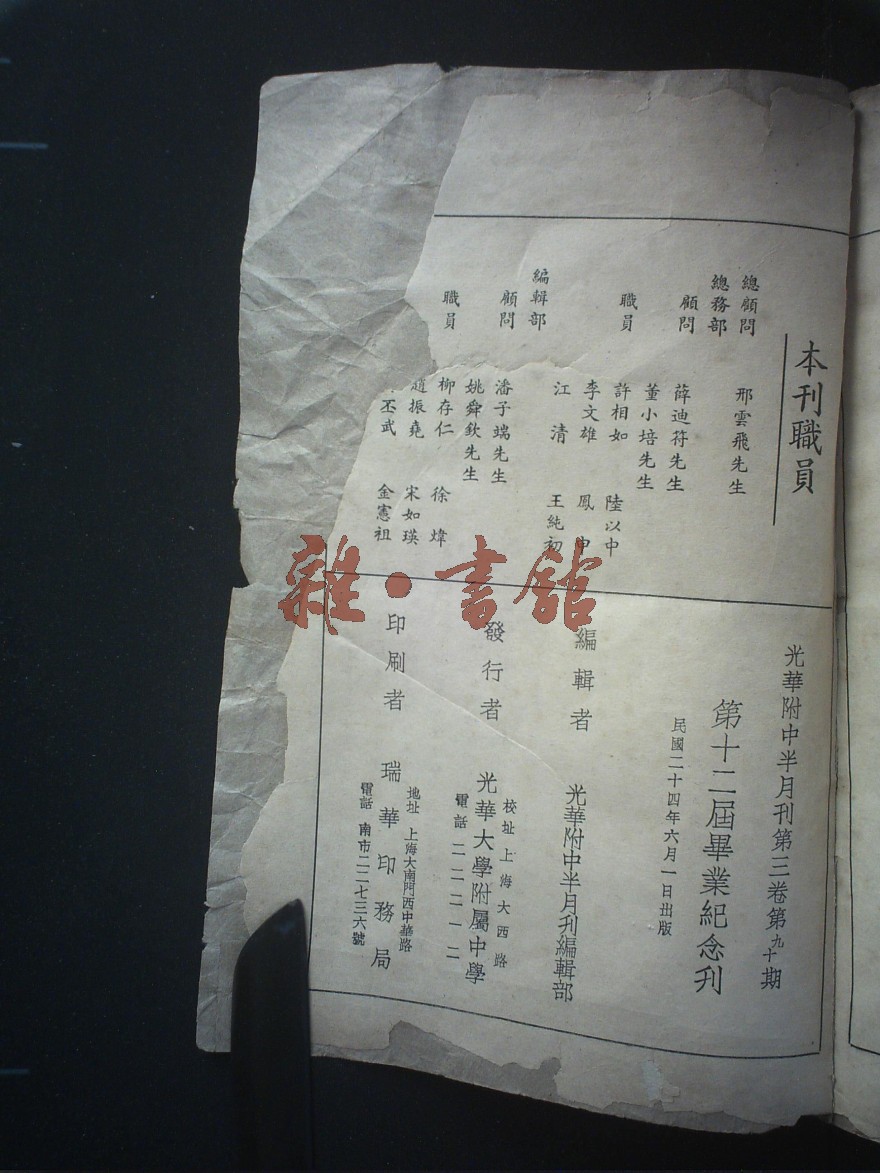 本刊職員
總顧問 邢雲飛先生
總務部
顧問 薛迪符先生
董小培先生
職員 許相如 陸以中
李文雄 鳳申
江清 王純初
編輯部
顧問 潘子端先生
姚舜欽先生
職員 柳存仁 徐煒
趙振堯 宋如瑛
丕武 金憲祖
光華附中半月刊第三卷第九十期
第十二屆畢業紀念刊
民國二十四年六月一日出版
編輯者 光華附中半月刊編輯部
發行者 光華大學附屬中學
校址 上海大西路
電話 二二二一二
印刷者 瑞華印務局
地址 上海大南門西中華路
電話 南市二二七三六號
雜·書館